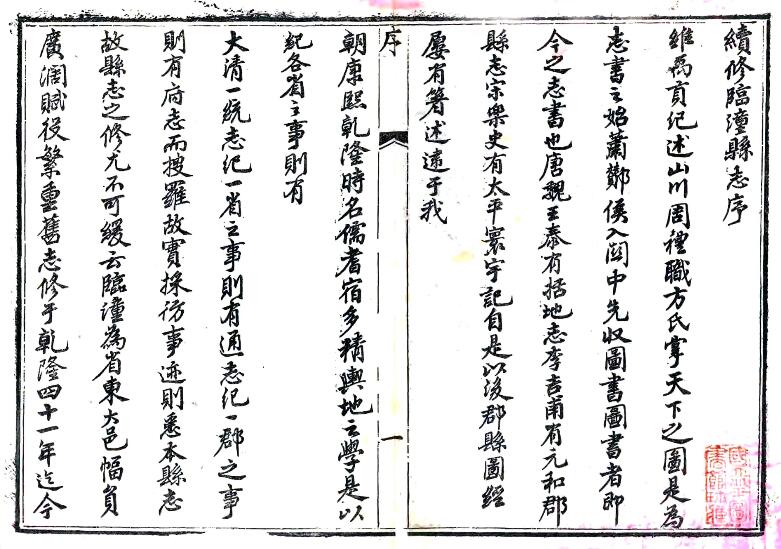 續修臨潼縣志序
維禹貢紀述山川周禮職方氏掌天下之圖是為
志書之始蕭酇侯入關中先收圖書圖書者即
今之志書也唐魏王泰有括地志李吉甫有元和郡
縣志宋樂史有太平寰宇記自是以後郡縣圖經
屢有箸述遠于我
序
一
朝康熙乾隆時名儒耆宿多精輿地之學是以
紀各省之事則有
大清一統志紀一省之事則有通志紀一郡之事
則有府志而搜羅故實採訪事迹則悉本縣志
故縣志之修尤不可緩云臨潼為省東大邑幅員
廣闊賦役繁重舊志修于乾隆四十一年迄今